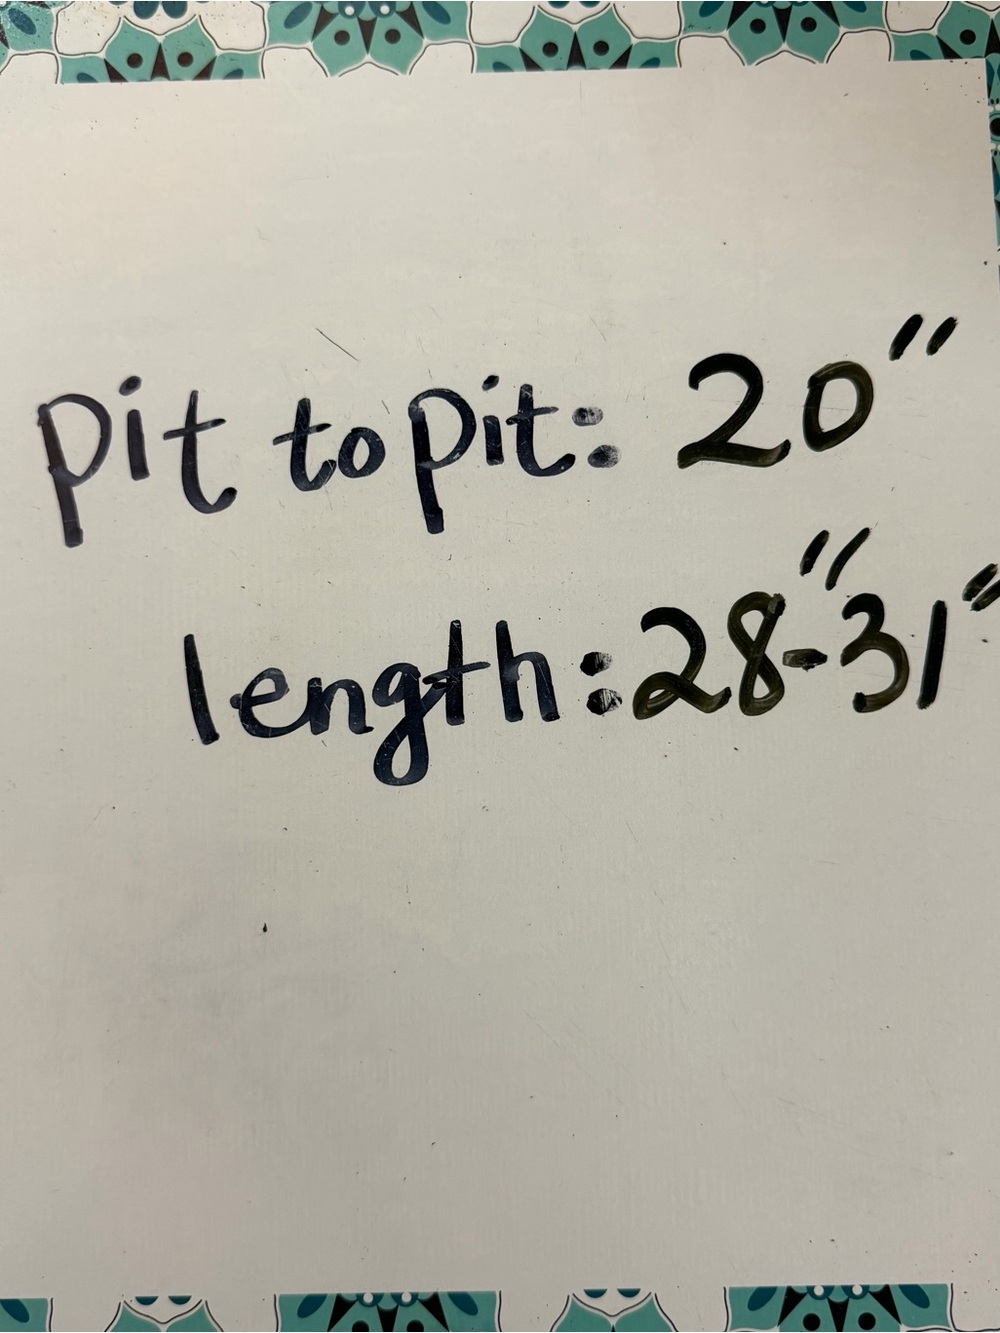 pit to pit: 20"
length: 28"-31"